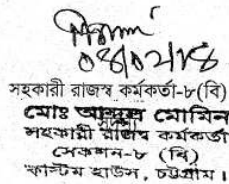 ০৪/০২/১৪
সহকারী রাজস্ব কর্মকর্তা-৮(বি)
মোঃ আব্দুল মোমিন
সহকারী রাজস্ব কর্মকর্তা
সেকশন-৮ (বি)
কাস্টম হাউস, চট্টগ্রাম।